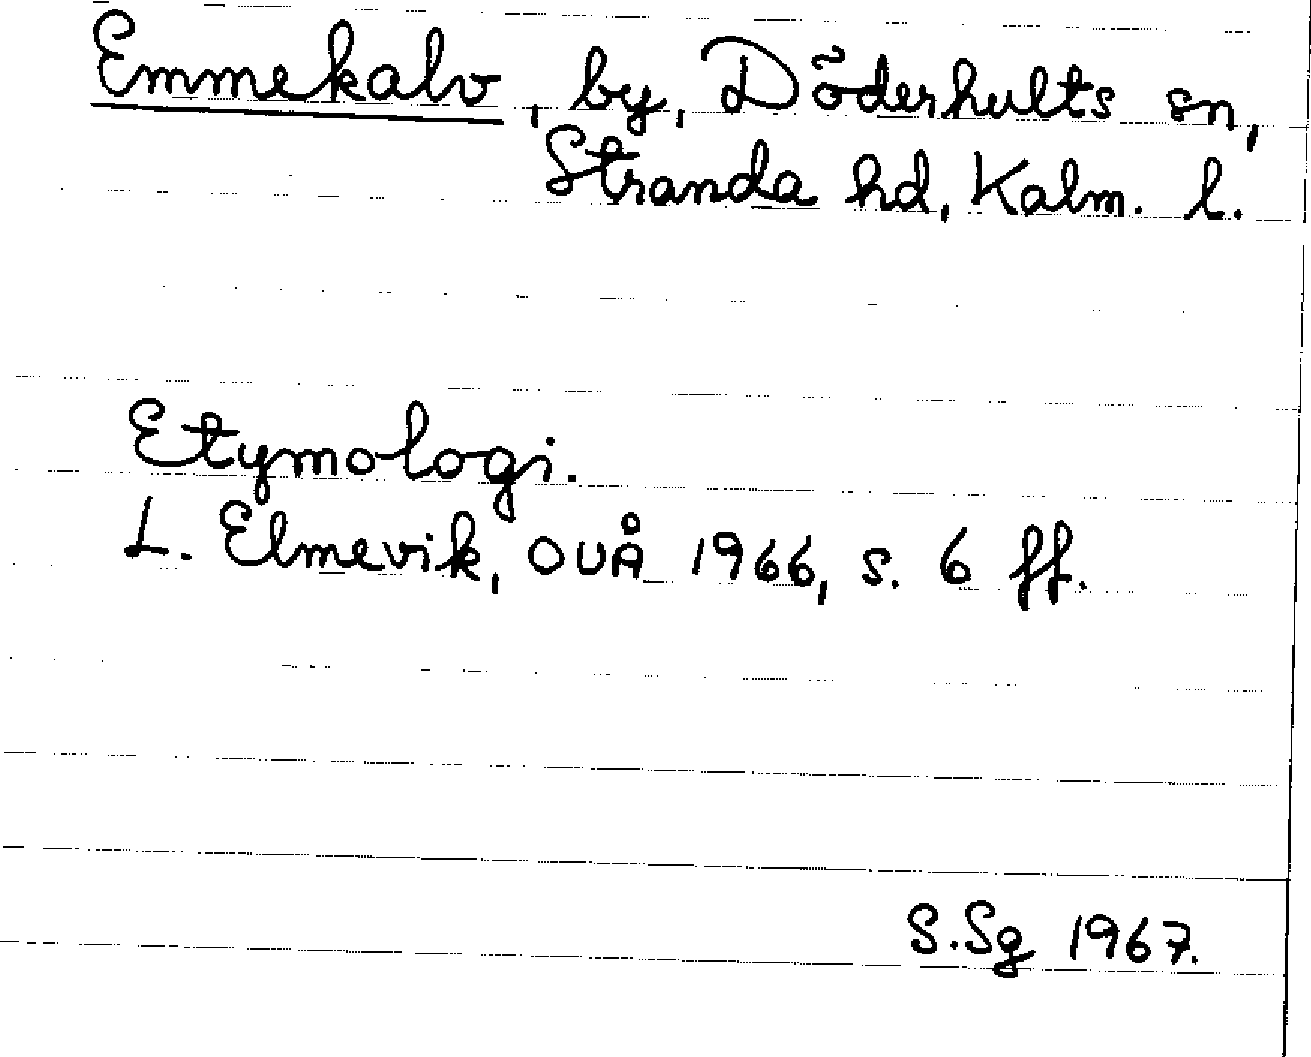 Emmekalv, by, Döderhults sn,
Stranda hd, Kalm. l.
Etymologi.
L. Elmevik, OUÅ 1966, s. 6 ff.
S.Sg 1967.